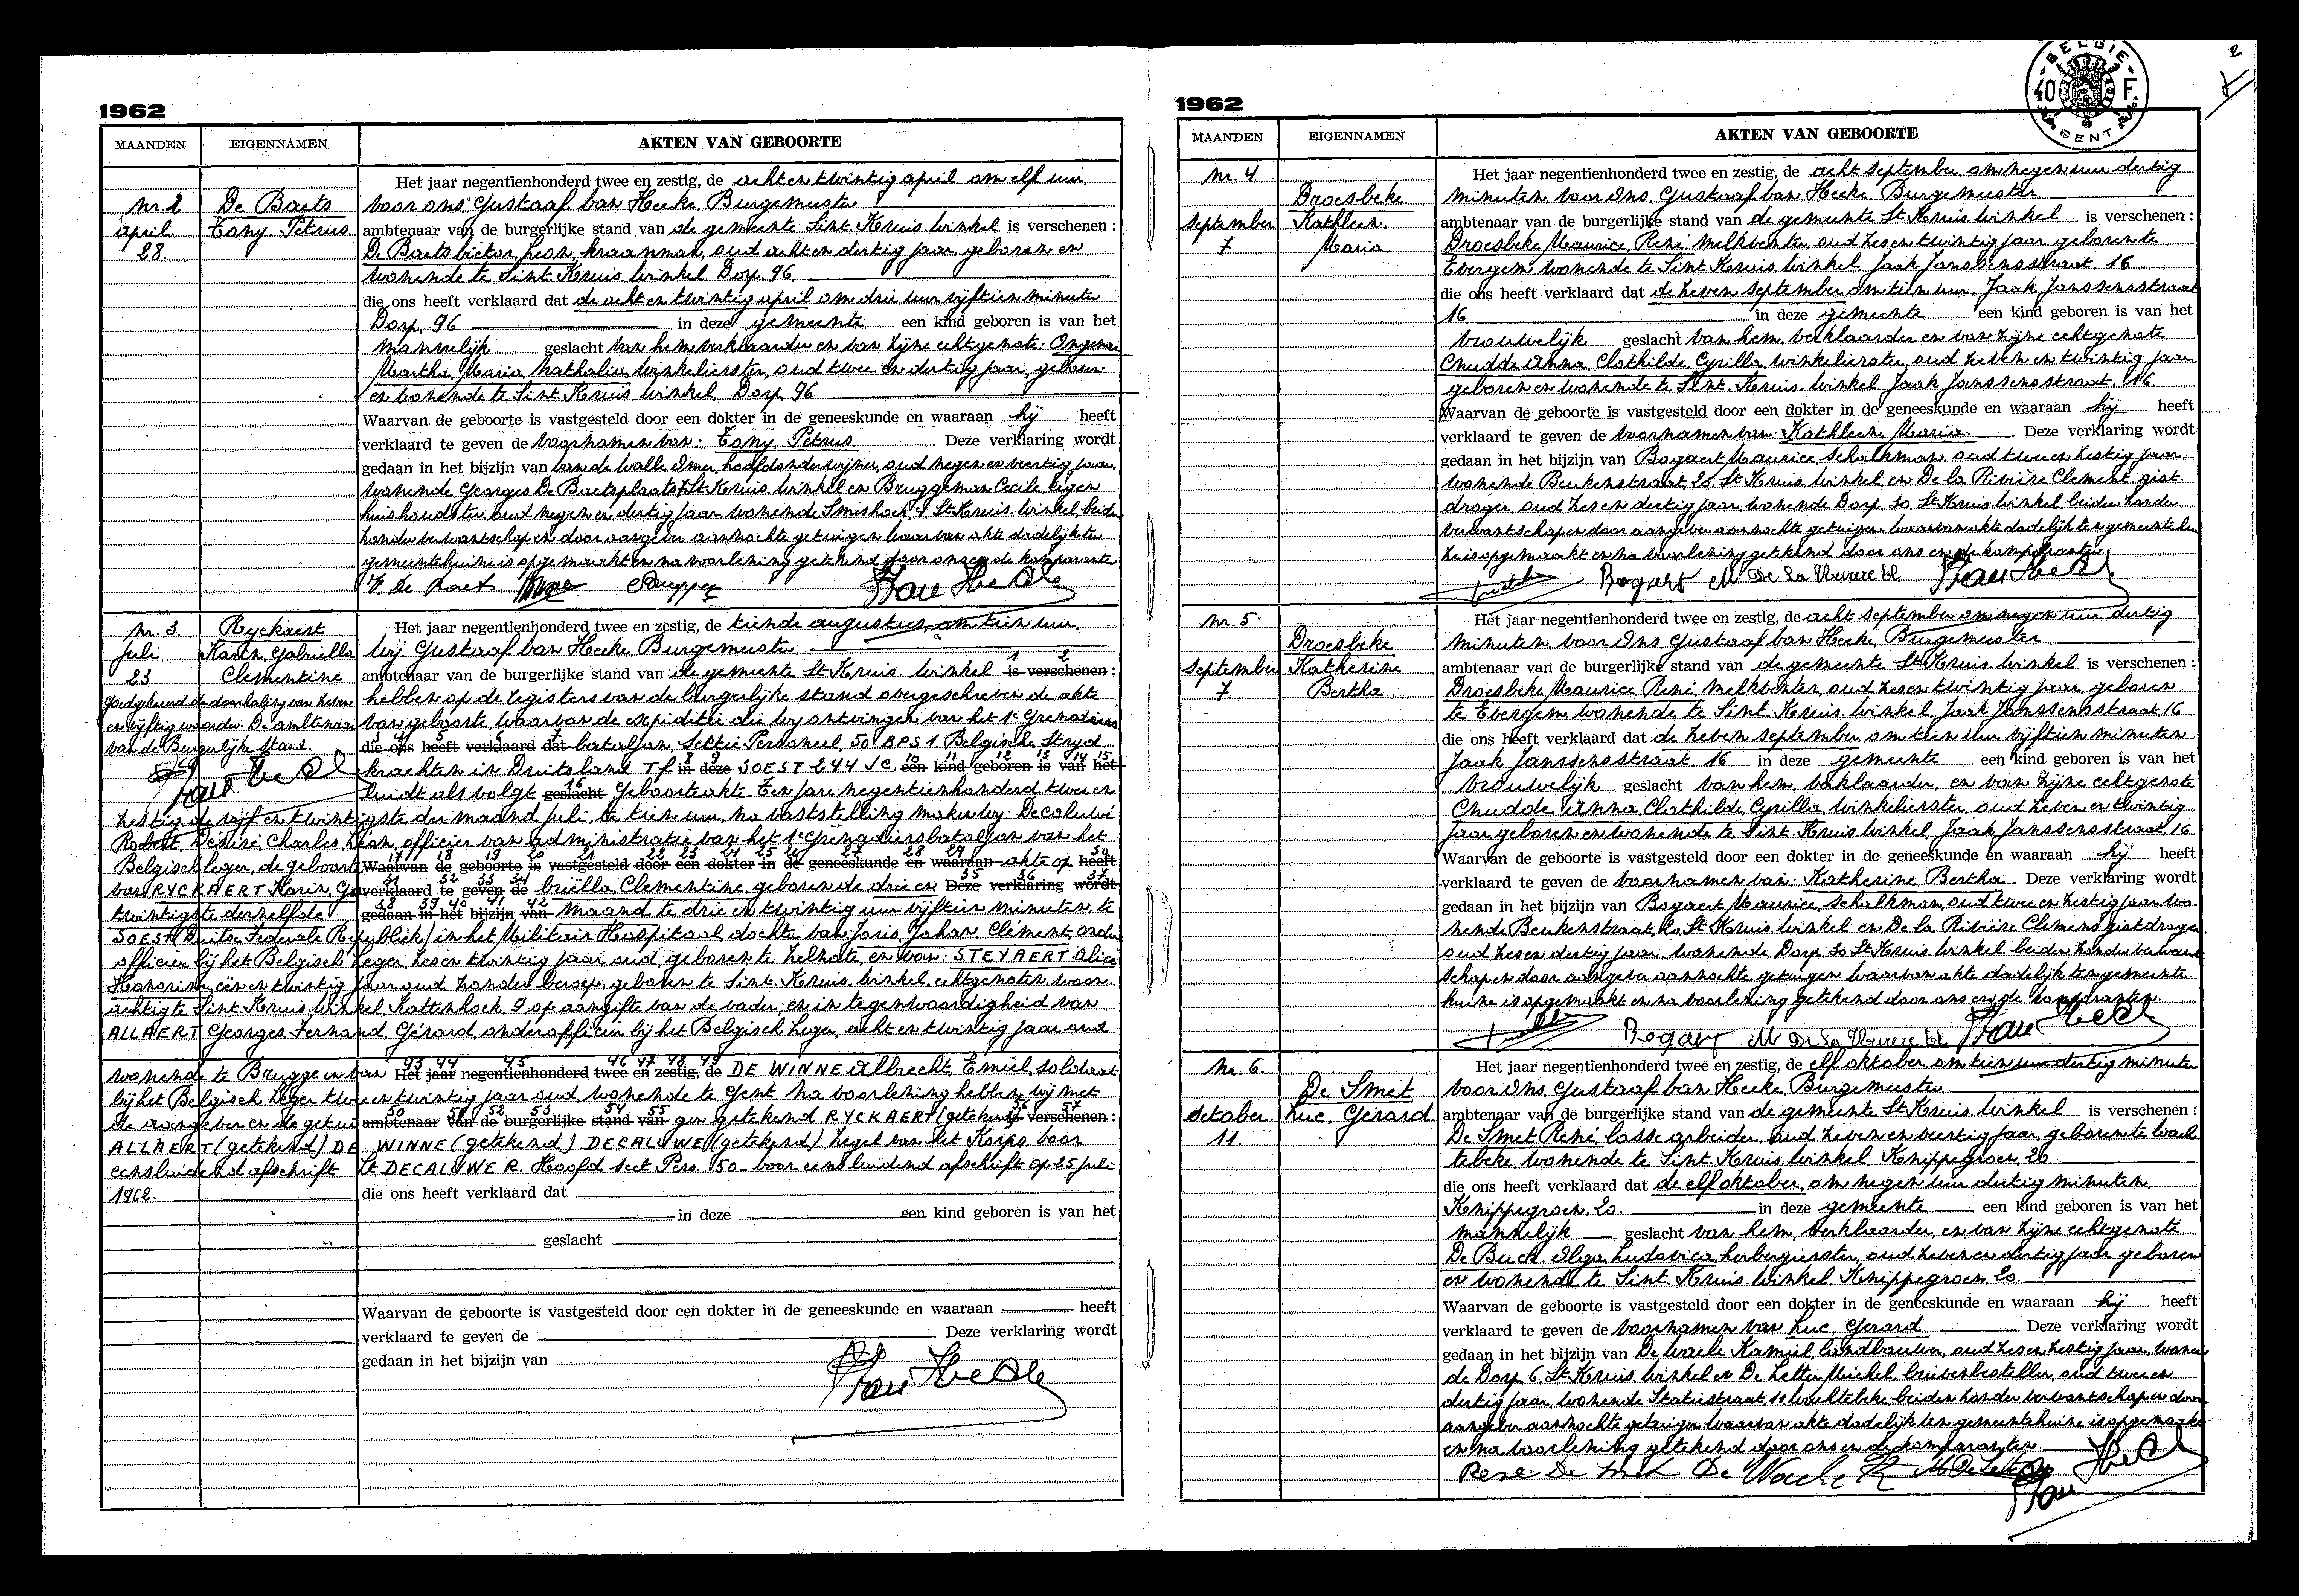 1962
MAANDEN EIGENNAMEN AKTEN VAN GEBOORTE
Nr. 2
april
28.
De Baets
Tony. Petrus
Het jaar negentienhonderd twee en zestig, de achtentwintig april om elf uur
voor ons Gustaaf Van Hecke, Burgemeester
ambtenaar van de burgerlijke stand van de gemeente Sint Kruis Winkel is verschenen :
De Baets Victor, Leon, kraanman, oud acht en dertig jaar geboren en
wonende te Sint Kruis Winkel Dorp. 96
die ons heeft verklaard dat de acht en twintig april om drie uur vijftien minuten
Dorp. 96 in deze gemeente een kind geboren is van het
mannelijk geslacht van hem verklaarder en van zijne echtgenote:
Martha, Maria Nathalia, winkelierster, oud twee en dertig jaar, geboren
en wonende te Sint Kruis Winkel, Dorp. 96
Waarvan de geboorte is vastgesteld door een dokter in de geneeskunde en waaraan hij heeft
verklaard te geven de voornamen van: Tony Petrus . Deze verklaring wordt
gedaan in het bijzijn van Van de Walle Omer, hoofdonderwijzer, oud negen en veertig jaar,
wonende Georges De Baetsplaats 7 St Kruis Winkel en Bruggeman Cecile, eigen
huishoudster oud negen en dertig jaar wonende Smishoek 4 St Kruis Winkel, beiden
zonder verwantschap en door aangever aanzochte getuigen waarvan akte dadelijk ten
gemeentehuize is opgemaakt en na voorlezing getekend door ons en de komparanten
V. De Baets
Nr. 3.
Juli
23
Ryckaert
Karin Gabriella
Clementine
goedgekeurd de doorhaling van zeven
en vijftig woorden. De ambtenaar
van de Burgerlijke Stand.
Het jaar negentienhonderd twee en zestig, de tiende augustus, om tien uur,
wij Gustaaf Van Hecke, Burgemeester
ambtenaar van de burgerlijke stand van de gemeente St Kruis Winkel 1 2 is verschenen :
hebben op de registers van de burgerlijke stand overgeschreven de akte
van geboorte, waarvan de expeditie die wij ontvingen van het 1e Grenadiers
die ons heeft verklaard dat bataljon, Sectie Personeel 50 BPS 1. Belgische Strijd
krachten in Duitsland Tf in deze SOEST 244 JC. een kind geboren is van het
luidt als volgt geslacht Geboorteakte. Ten jare negentienhonderd twee en
zestig de vijf en twintigste der maand juli, te tien uur, na vaststelling maken wij: Decaluwé
Robert, Désiré, Charles Léon, officier van administratie van het 1e Grenadiersbataljon van het
Belgisch leger, de geboorte Waarvan de geboorte is vastgesteld door een dokter in de geneeskunde en waaraan akte op heeft
van RYCKAERT Karin, Ga verklaard te geven de briëlla Clementine, geboren de drie en Deze verklaring wordt
twintigste derzelfde gedaan in het bijzijn van maand te drie en twintig uur vijftien minuten, te
SOEST (Duitse Federale Republiek) in het Militair Hospitaal, dochter van Joris, Johan, Clément, onder
officier bij het Belgisch leger, zes en twintig jaar oud, geboren te Zelzate, en van: STEYAERT Alice
Honorine, één en twintig jaar oud zonder beroep, geboren te Sint. Kruis. Winkel echtgenoten woon
achtig te Sint. Kruis, Winkel Kattenhoek 9 op aangifte van de vader; en in tegenwoordigheid van
ALLAERT Georges. Fernand, Gérard, onderofficier bij het Belgisch Leger, acht en twintig jaar oud
wonende te Brugge en van Het jaar negentienhonderd twee en zestig, de DE WINNE Albrecht, Emiel, soldaat
bij het Belgisch Leger twee en twintig jaar oud, wonende te Gent. Na voorlezing hebben wij met
de aangever en de getui ambtenaar van de burgerlijke stand van gen getekend RYCKAERT (getekend) verschenen :
ALLAERT (getekend) DE WINNE (getekend) DECALUWE (getekend) Zegel van het Korps. Voor
eensluidend afschrift Lt DECALUWE R. Hoofd sect Pers. 50 - voor eensluidend afschrift op 25 juli
1962.
die ons heeft verklaard dat
in deze een kind geboren is van het
geslacht
Waarvan de geboorte is vastgesteld door een dokter in de geneeskunde en waaraan heeft
verklaard te geven de . Deze verklaring wordt
gedaan in het bijzijn van
BELGIE
40 F.
GENT
2
1962
MAANDEN EIGENNAMEN AKTEN VAN GEBOORTE
Nr. 4
September
7
Droesbeke
Kathleen.
Maria
Het jaar negentienhonderd twee en zestig, de acht september om negen uur dertig
minuten voor Ons Gustaaf Van Hecke, Burgemeester
ambtenaar van de burgerlijke stand van de gemeente St Kruis Winkel is verschenen :
Droesbeke Maurice, René, melkventer, oud zes en twintig jaar geboren te
Evergem wonende te Sint Kruis. Winkel, Jaak Janssensstraat. 16
die ons heeft verklaard dat de zeven september om tien uur, Jaak Janssensstraat
16 in deze gemeente een kind geboren is van het
vrouwelijk geslacht van hem, verklaarder en van zijne echtgenote
Cnudde Anna, Clothilde, Cyrilla, winkelierster, oud zeven en twintig jaar
geboren en wonende te Sint. Kruis. Winkel, Jaak Janssensstraat, 16.
Waarvan de geboorte is vastgesteld door een dokter in de geneeskunde en waaraan hij heeft
verklaard te geven de voornamen van: Kathleen, Maria. . Deze verklaring wordt
gedaan in het bijzijn van Bogaert Maurice, schalkman, oud twee en zestig jaar,
wonende Beukenstraat 20 St Kruis Winkel en De la Rivière Clement, gist
drager, oud zes en dertig jaar wonende Dorp. 30 St Kruis Winkel beiden zonder
verwantschap en door aangever aanzochte getuigen waarvan akte dadelijk ten gemeentehui
ze is opgemaakt en na voorlezing getekend door ons en de komparanten
Bogaert M
Nr. 5.
September
7
Droesbeke
Katherine
Bertha
Het jaar negentienhonderd twee en zestig, de acht september om negen uur dertig
minuten voor Ons, Gustaaf Van Hecke, Burgemeester
ambtenaar van de burgerlijke stand van de gemeente St Kruis Winkel is verschenen :
Droesbeke Maurice René, melkventer, oud zes en twintig jaar, geboren
te Evergem wonende te Sint Kruis. Winkel, Jaak Janssensstraat 16
die ons heeft verklaard dat de zeven september om tien uur vijftien minuten
Jaak Janssensstraat. 16 in deze gemeente een kind geboren is van het
vrouwelijk geslacht van hem, verklaarder, en van zijne echtgenote
Cnudde Anna Clothilde, Cyrilla, winkelierster, oud zeven en twintig
jaar, geboren en wonende te Sint Kruis Winkel, Jaak Janssensstraat, 16
Waarvan de geboorte is vastgesteld door een dokter in de geneeskunde en waaraan hij heeft
verklaard te geven de voornamen van: Katherine, Bertha . Deze verklaring wordt
gedaan in het bijzijn van Bogaert Maurice, schalkman, oud twee en zestig jaar wo
nende Beukenstraat, 20 St Kruis Winkel en De la Rivière Clement, gistdrager
oud zes en dertig jaar, wonende Dorp. 30 St Kruis Winkel beiden zonder verwant
schap en door aangever aanzochte getuigen waarvan akte dadelijk ten gemeente
huize is opgemaakt en na voorlezing getekend door ons en de komparanten
Bogaert M
Nr. 6.
October.
11
De Smet
Luc, Gérard
Het jaar negentienhonderd twee en zestig, de elf oktober om tien uur dertig minuten
voor Ons, Gustaaf Van Hecke, Burgemeester
ambtenaar van de burgerlijke stand van de gemeente St Kruis Winkel is verschenen :
De Smet René, losse arbeider, oud zeven en veertig jaar, geboren te Wach
tebeke, wonende te Sint Kruis. Winkel Knippegroen, 20
die ons heeft verklaard dat de elf oktober, om negen uur dertig minuten,
Knippegroen, 20. in deze gemeente een kind geboren is van het
mannelijk geslacht van hem, verklaarder, en van zijne echtgenote
De Buck Olga, Ludovica, herbergierster, oud zeven en dertig jaar geboren
en wonende te Sint Kruis. Winkel, Knippegroen 20
Waarvan de geboorte is vastgesteld door een dokter in de geneeskunde en waaraan hij heeft
verklaard te geven de voornamen van Luc, Gerard . Deze verklaring wordt
gedaan in het bijzijn van De Waele Kamiel, landbouwer, oud zes en zestig jaar, wonen
de Dorp 6, St Kruis Winkel en De Letter Michel, brievenbesteller, oud twee en
dertig jaar, wonende Statiestraat 10 Wachtebeke beiden zonder verwantschap en door
aangever aanzochte getuigen waarvan akte dadelijk ten gemeentehuize is opgemaakt
en na voorlezing getekend door ons en de komparanten
René De Smet De Waele K